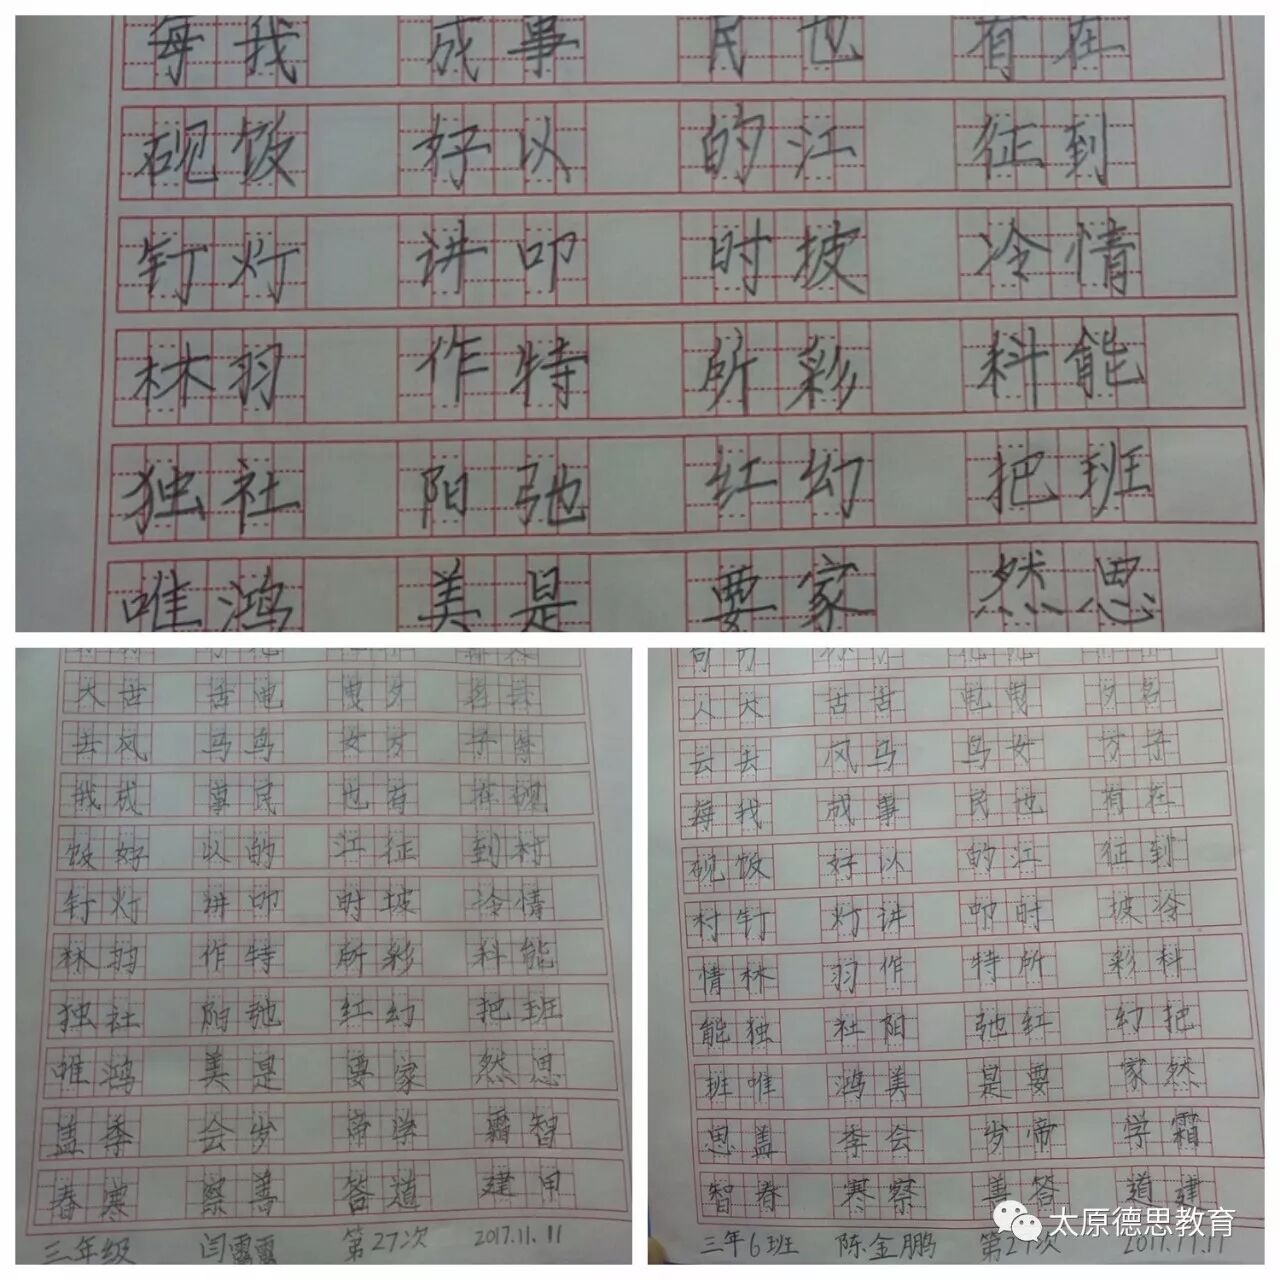 每我 成事 民也 有在
砚饭 好以 的江 征到
钉灯 讲叩 时披 冷情
林羽 作特 所彩 料能
独社 阳弛 红幻 把班
唯鸿 美是 要家 然思
大世 舌电 曳夕 名云
去风 马鸟 女方 子每
我成 事民 也有 在砚
饭好 以的 江征 到村
钉灯 讲叩 时坡 冷情
林 作特 所彩 料能
独社 阳弛 红幻 把班
唯鸿 美是 要家 然思
盖季 会岁 帝学 霜智
春寒 察善 答道 建甲
三年级 闫露露 第27次 2017.11.11
人大 甩曳 夕名
云去 风马 鸟女 方子
每我 成事 民也 有在
砚饭 好以 的江 征到
村钉 灯讲 叩时 披冷
情林 羽作 特所 彩科
能独 社阳 弛红 幻把
班唯 鸿美 是要 家然
思盖 季会 岁帝 学霜
智春 寒察 善答 道建
三年6班 陈金鹏 第27次 2017.11.11
太原德思教育